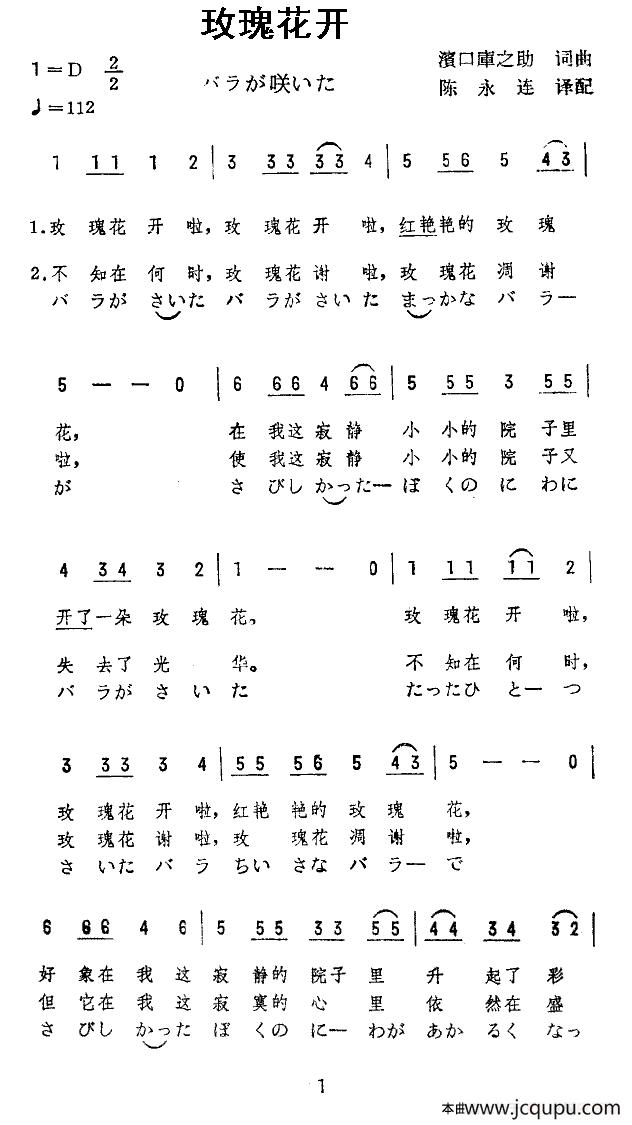 玫瑰花开
1=D 2/2
♩=112
バラが咲いた
濱口庫之助 词曲
陈永连 译配
1 11 1 2 | 3 33 33 4 | 5 56 5 43 |
1.玫 瑰花 开 啦,玫 瑰花 开 啦,红艳艳的 玫 瑰
2.不 知在 何 时,玫 瑰花 谢 啦,玫 瑰花 凋 谢
バ ラが さいた バ ラがさいた まっかな バラー
5 — — 0 | 6 66 4 66 | 5 55 3 55 |
花, 在 我这 寂 静 小 小的 院 子里
啦, 使 我这 寂 静 小 小的 院 子又
が さ びし かったーぼ くの に わに
4 34 3 2 | 1 — — 0 | 1 11 11 2 |
开了一朵 玫 瑰 花。 玫 瑰花 开 啦,
失 去了 光 华。 不 知在 何 时,
バ ラが さ いた たったひ とー つ
3 33 3 4 | 55 55 5 43 | 5 — — 0 |
玫 瑰花 开 啦,红艳 艳的 玫 瑰 花,
玫 瑰花 谢 啦,玫 瑰花 凋 谢 啦,
さ いた バ ラ ちい さな バ ラー で
6 66 4 6 | 5 55 33 55 | 44 34 32 |
好 象在 我 这 寂 静的 院子 里 升 起了 彩
但 它在 我 这 寂 寞的 心 里 依 然在 盛
さ びし かった ぼ くの にー わが あか るく なっ
1
本曲www.jcqupu.com